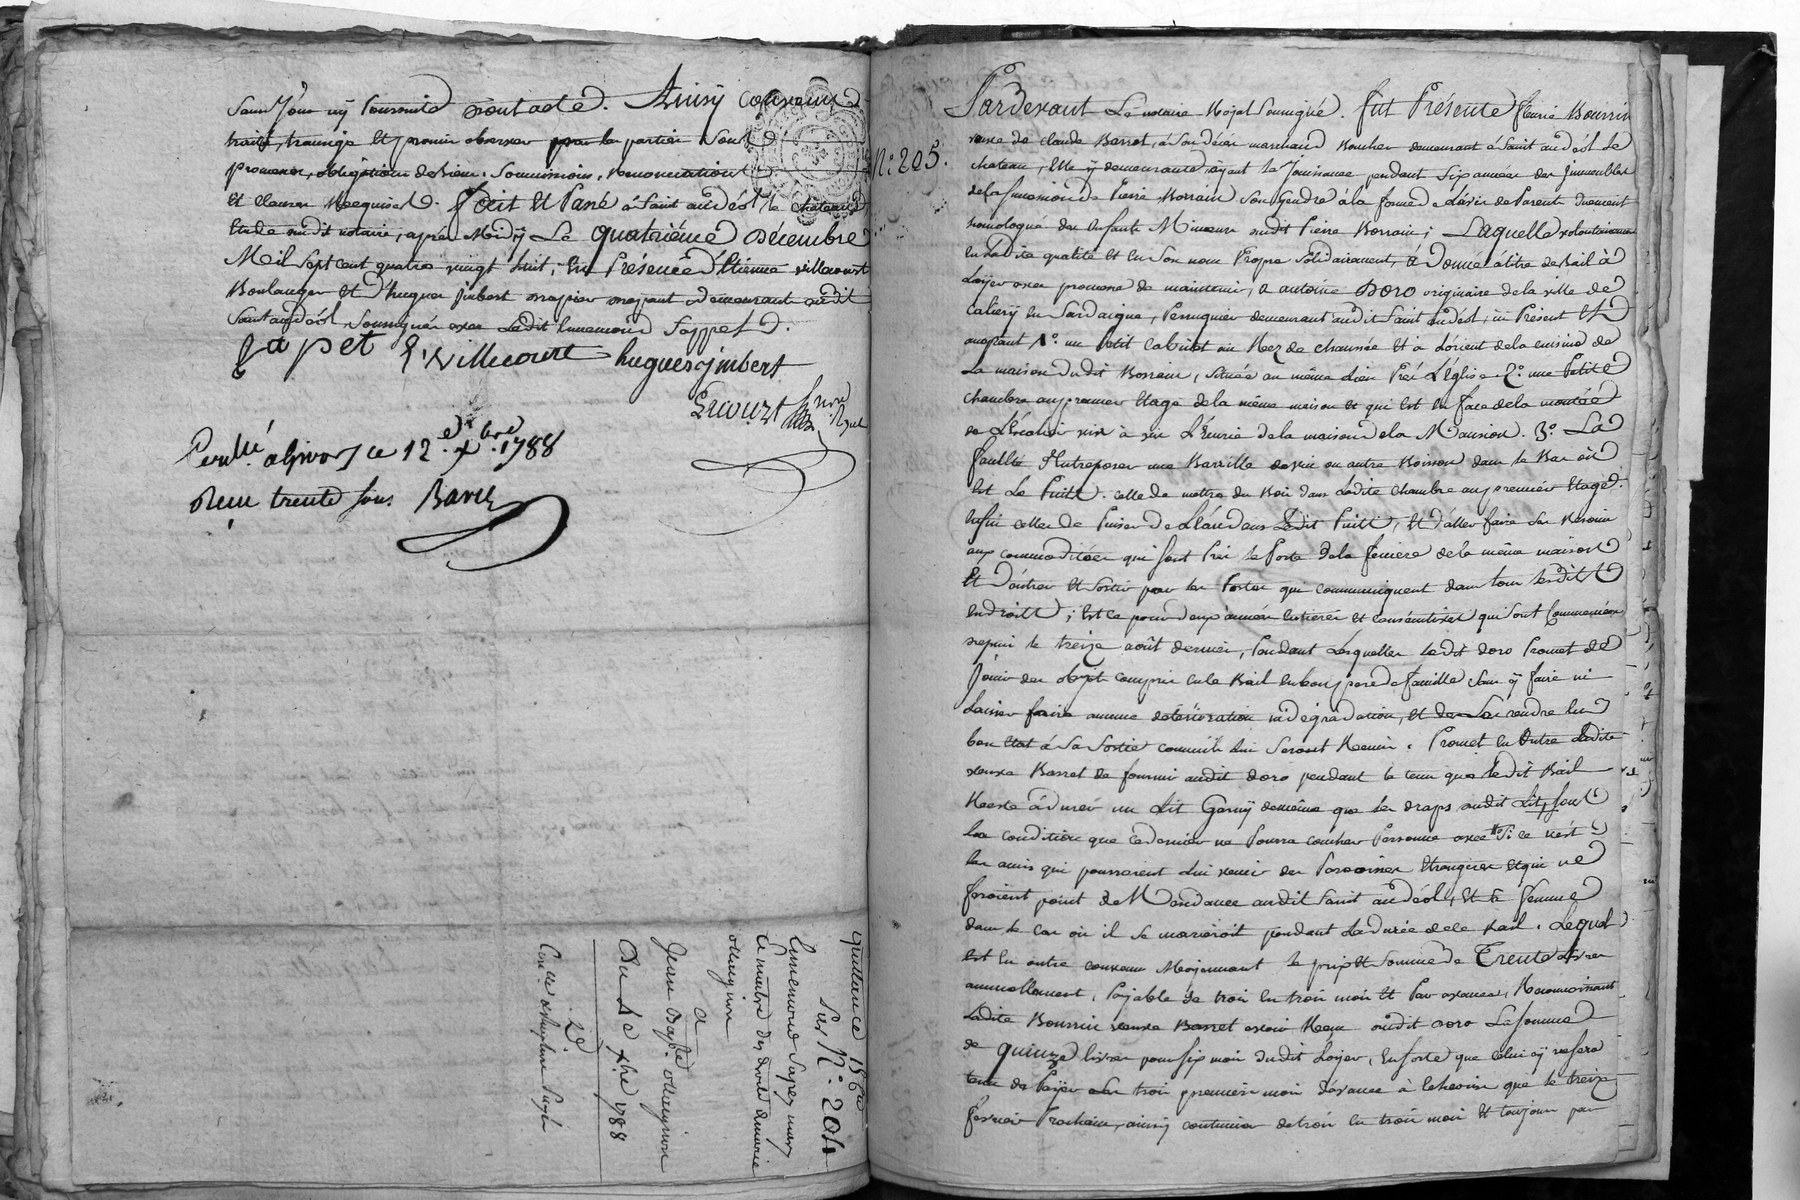 Sans Jour ny poursuite Dont acte. Ainsy convenu
traité, transigé Et promis observer par les parties Sous
promesses, obligations de Biens, Soumissions, Renonciations
Et clauses Requises. Fait Et Passé à Saint andéol le chateau
Etude dudit notaire, après Midÿ Le quatriéme Decembre
Mil Sept cent quatre vingt huit, En Présence d'Etienne Villecourt
Boulanger Et d'hugues jmbert demeurants audit
Saint andéol, Soussignés avec Ledit Sappet.
Sapet E. Villecourt hugues jmbert
Lecourt
Conllé a Givors ce 12 e. xbre. 1788
Recu trente sous.
quittance 156
Sur N.º 204
Sapey mary
de marie
a
Jean Bapte.
Du 4 e xbre 1788
N.º 205.
Pardevant Le notaire Royal Soussigné. fut Présente
veuve de claude Barret, à Son décès marchand Boucher demeurant à Saint andéol le
chateau, Elle ÿ demeurante, aÿant la Jouissance pendant Six années des Immeubles
de la Succession de Pierre Son gendre à la forme de L'avis de Parents duement
homologué des Enfants Mineurs dudit Pierre ; Laquelle volontairement
En Ladite qualité et En Son nom Propre Solidairement, à Donné à titre de Bail à
Loÿer avec promesse de maintenir, a antoine Doro originaire de la ville de
en Sardaigne, Perruquier demeurant audit Saint andéol, ici Présent Et
aceptant 1.º un petit Cabinet au Rez de chaussée Et à L'orient de la cuisine de
La maison dudit , Située au même Lieu Près L'Eglise. 2.º une Petite
chambre au premier Etage de la même maison et qui Est En face de la montée
de L'Escalier vis à vis L'Ecurie de la maison de la . 3.º La
faculté d'Entreposer une Barrille de vin ou autre Boisson dans le Bas où
Est Le Puits. celle de mettre du Bois dans Ladite chambre au premier Etage.
Enfin celle de Puiser de L'Eau dans Ledit Puits, Et d'aller faire Ses Besoins
aux commodités qui Sont Près la Porte de la de la même maison
Et d'entrer Et Sortir par les Portes qui communiquent dans tous lesdits
Endroits ; Est ce pour deux années Entieres et consécutives qui Sont Commencées
depuis le treize août dernier, Pendant Lesquelles Ledit doro Promet de
Jouir des objets compris en le Bail en bon pere de famille Sans ÿ faire ni
Laisser faire aucune déterioration ni dégradation, et de Les rendre En
bon Etat à Sa Sortie comme ils Lui Seront Remis. Promet En Outre Ladite
veuve Barret de fournir audit doro pendant le tems que Ledit Bail
Reste à durer un Lit Garnÿ de même que les draps audit Lit, Sous
La condition que ce dernier ne Pourra coucher Personne avec Si ce n'est
les amis qui pourroient Lui venir des Paroisses Etrangeres Et qui ne
feroient point de Résidance audit Saint andéol, Et Sa femme
dans le cas où il Se marieroit pendant La durée de ce Bail. Lequel
Est En outre convenu Moÿennant le prix Et Somme de Trente Livres
annuellement, Payable de trois En trois mois Et Par avance, Reconnoissant
Ladite veuve Barret avoir Reçu dudit doro La Somme
de quinze livres pour Six mois dudit Loÿer, En Sorte que Celui cÿ ne Sera
tenu de Payer Les trois premiers mois d'avance à l'echeoir que le treize
fevrier Prochain, ainsÿ continuer de trois En trois mois Et toujours par